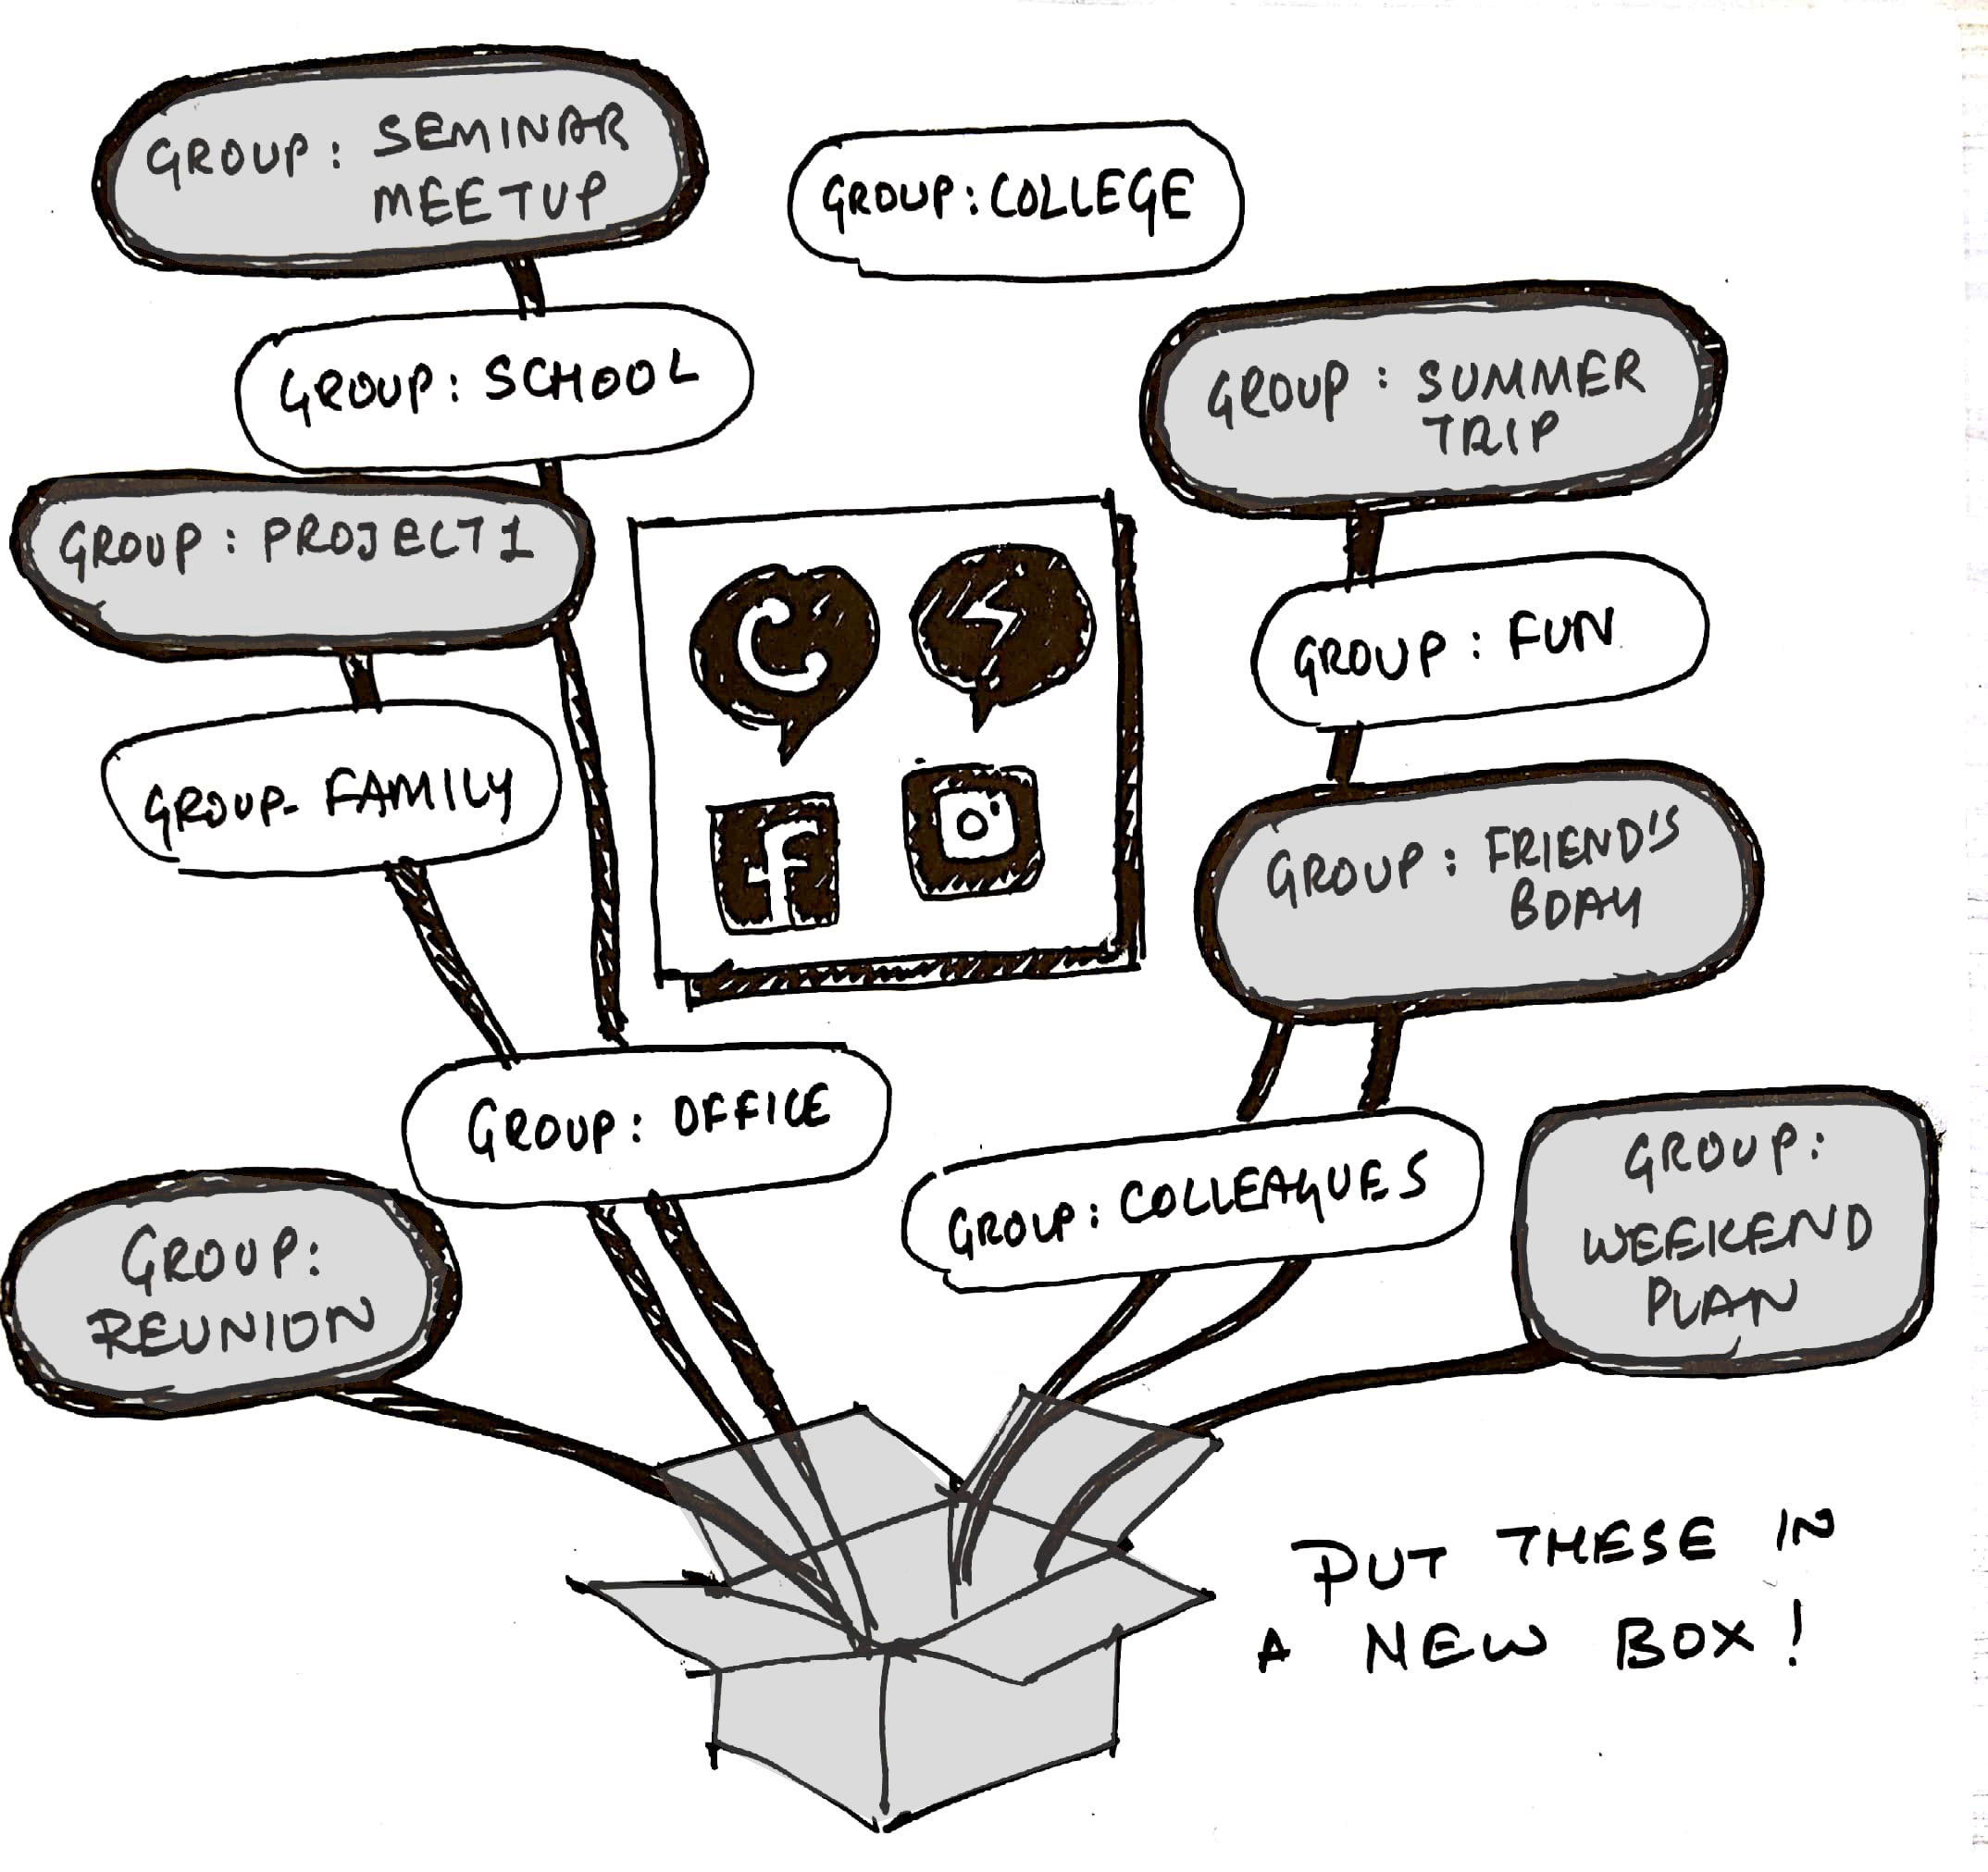 GROUP: SEMINAR
MEETUP
GROUP: COLLEGE
GROUP: SCHOOL
GROUP: SUMMER
TRIP
GROUP: PROJECT1
GROUP: FUN
GROUP- FAMILY
GROUP: FRIEND'S
BDAY
GROUP: OFFICE
GROUP: COLLEAGUES
GROUP:
WEEKEND
PLAN
GROUP:
REUNION
PUT THESE IN
A NEW BOX!